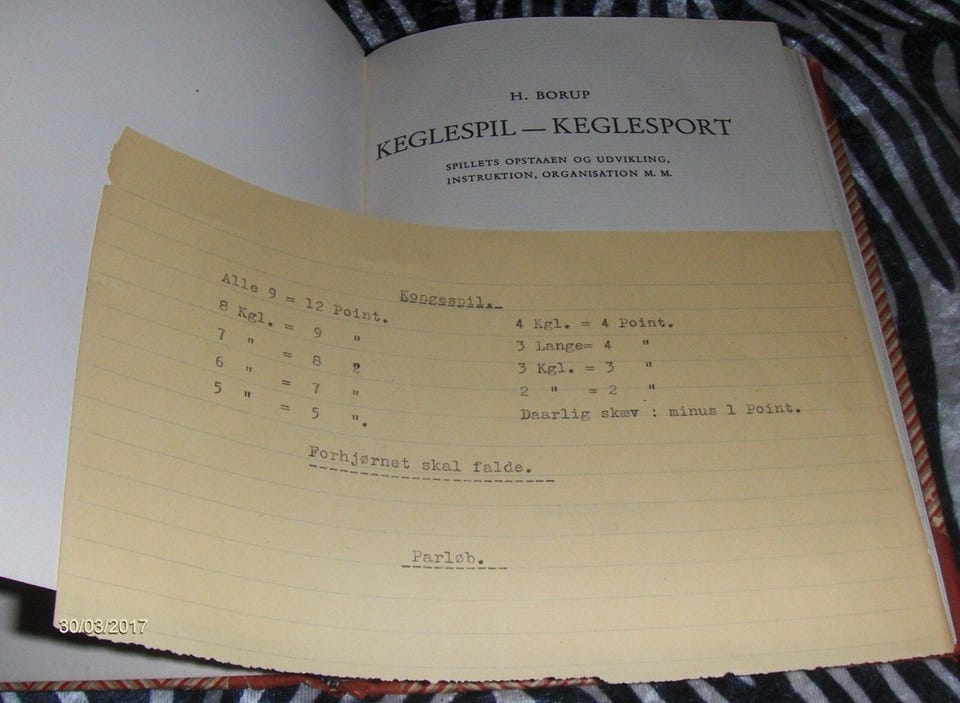 H. BORUP
KEGLESPIL — KEGLESPORT
SPILLETS OPSTAAEN OG UDVIKLING,
INSTRUKTION, ORGANISATION M. M.
Kongespil.
Alle 9 = 12 Point.
8 Kgl. = 9 "
7 " = 8 "
6 " = 7 "
5 " = 5 ".
4 Kgl. = 4 Point.
3 Lange= 4 "
3 Kgl. = 3 "
2 " = 2 "
Daarlig skæv : minus 1 Point.
Forhjørnet skal falde.
Parløb.
30/03/2017